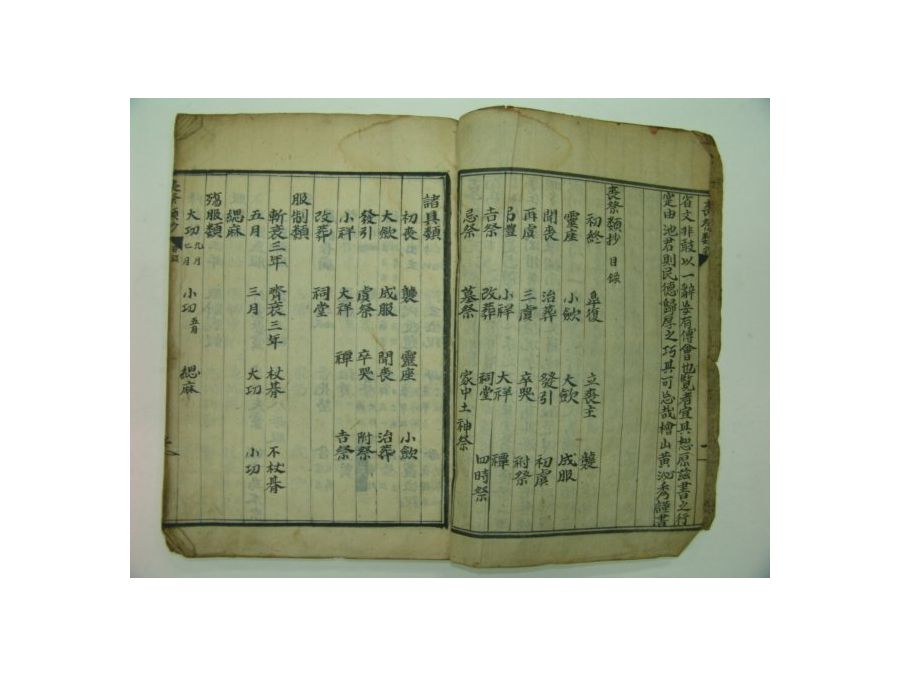 省文非敢以一辭妄有傅會也覽者宜其想原茲書之行
寔由池君則民德歸厚之巧其可忘哉檜山黃泌秀謹書
喪祭類抄 目錄
初終 皐復 立喪主 襲
靈座 小歛 大歛 成服
聞喪 治葬 發引 初虞
再虞 三虞 卒哭 祔祭
吊禮 小祥 大祥 禫
吉祭 改葬 祠堂 四時祭
忌祭 墓祭 家中土神祭
諸具類
初喪 襲 靈座 小歛
大歛 成服 聞喪 治葬
發引 虞祭 卒哭 祔祭
小祥 大祥 禫 吉祭
改葬 祠堂
服制類
斬衰三年 齊衰三年 杖朞 不杖朞
五月 三月 大功 小功
緦麻
殤服類
大功九月七月 小功五月 緦麻